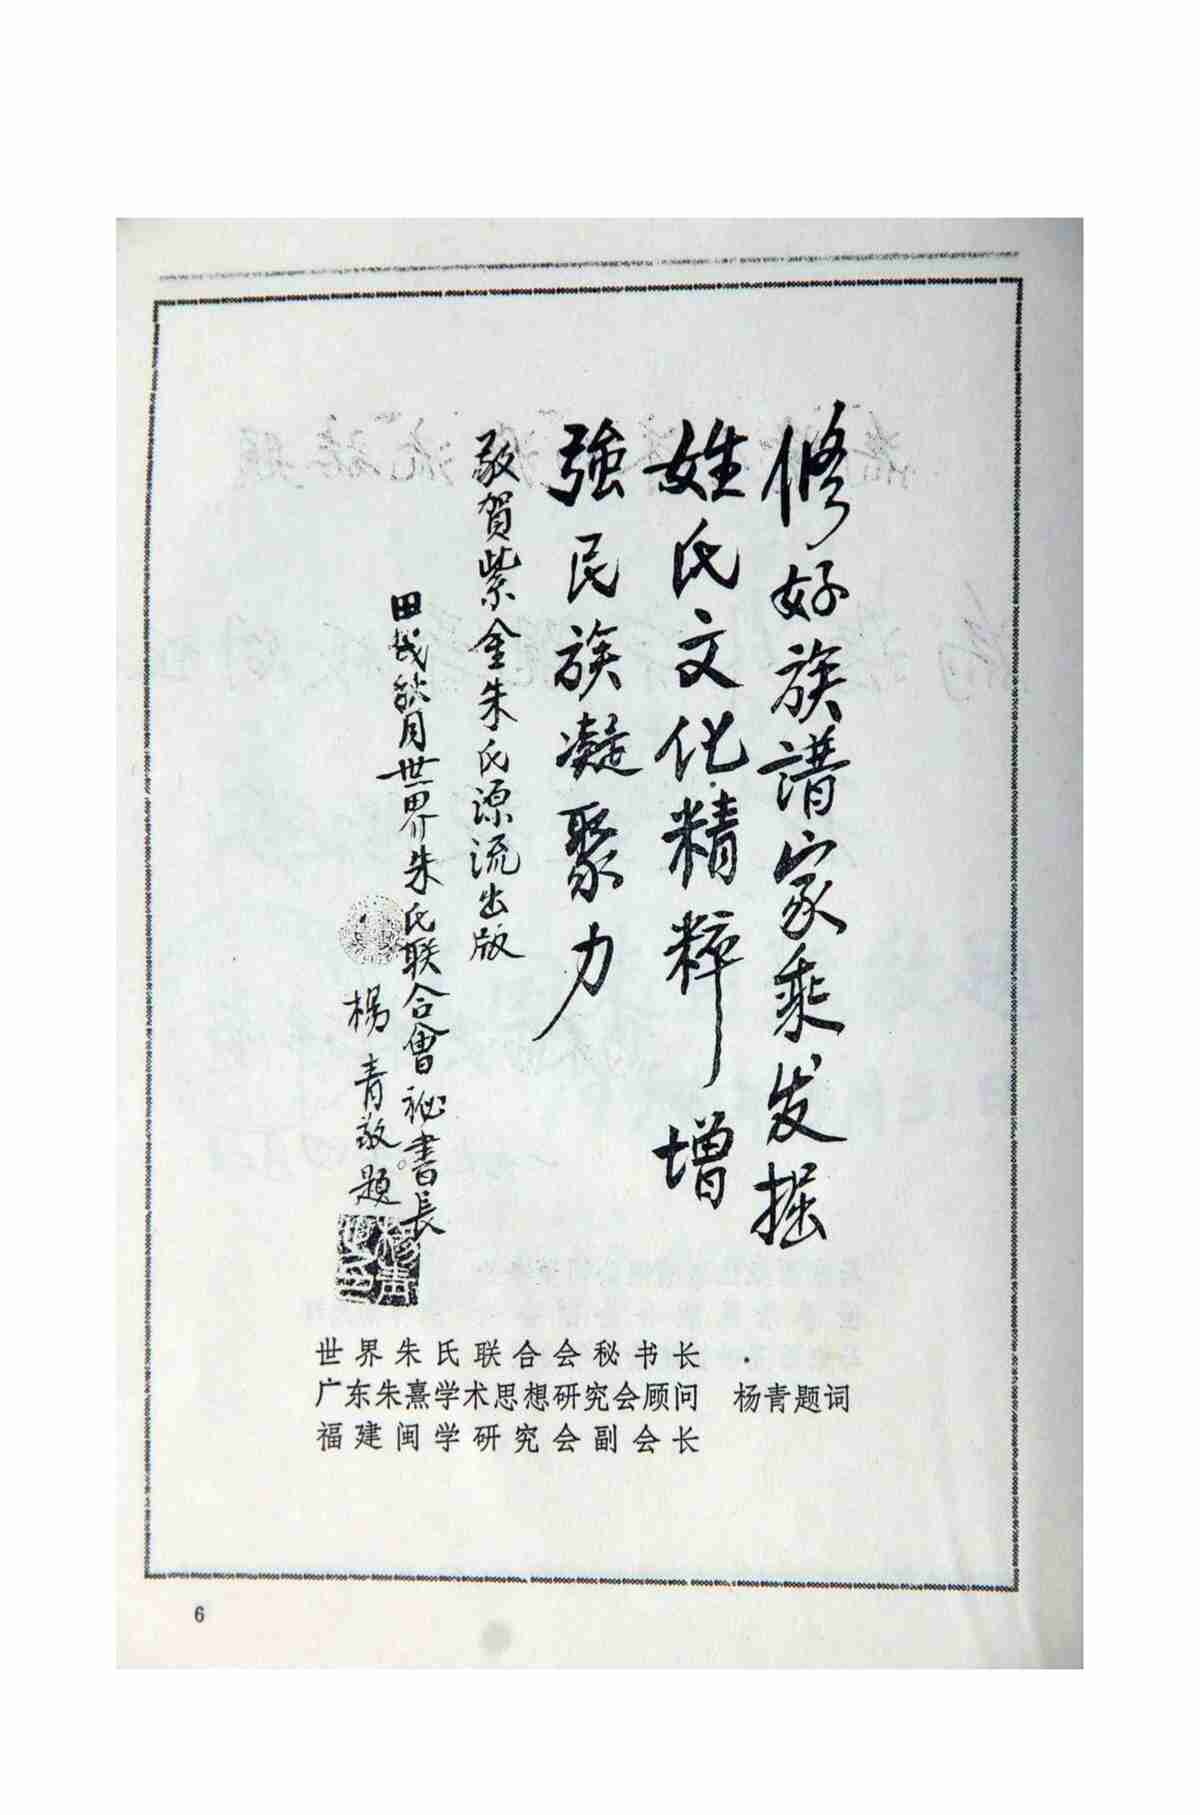 修好族谱家乘发掘
姓氏文化精粹增
強民族凝聚力
敬賀紫金朱氏源流出版
秋月世界朱氏联合會秘書長
楊青敬題
世界朱氏联合会秘书长
广东朱熹学术思想研究会顾问 杨青题词
福建闽学研究会副会长
6